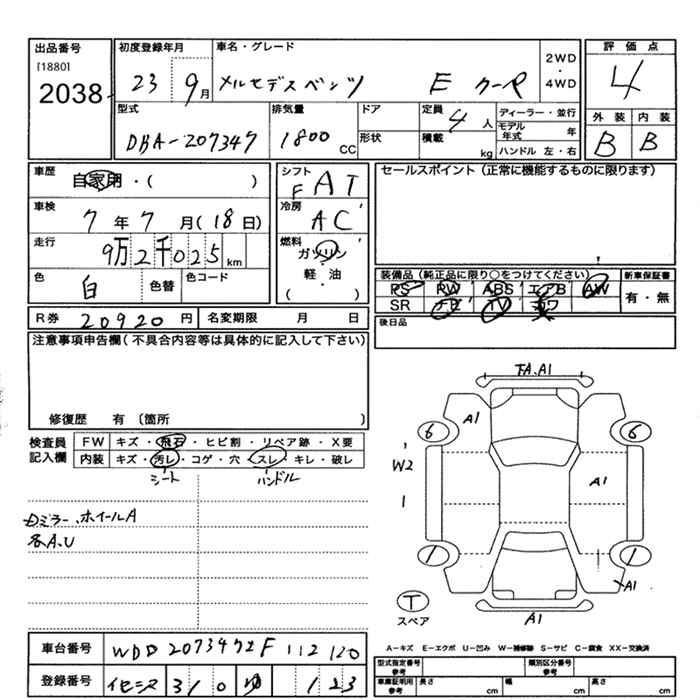 出品番号 初度登録年月 車名・グレード 2WD・4WD 評価点
[1880]
2038 23 9月 メルセデスベンツ E クーペ 4
型式 排気量 ドア 定員 4人 ディーラー・並行 外装 内装
DBA-207347 1800CC 形状 積載 kg モデル年式 年 B B
ハンドル 左・右
車歴 自家用・( ) シフト FAT セールスポイント(正常に機能するものに限ります)
車検 7年7月(18日) 冷房 AC
走行 9万2千025km 燃料 ガソリン・軽・油 ( )
色 白 色替 色コード 装備品(純正品に限り○をつけてください) 新車保証書
PS PW ABS エアB AW 有・無
SR ナビ TV カワ
R券 20920円 名変期限 月 日 後日品
注意事項申告欄(不具合内容等は具体的に記入して下さい)
修復歴 有 〔箇所 〕
検査員記入欄 FW キズ・飛石・ヒビ割・リペア跡・X要
内装 キズ・汚レ・コゲ・穴・スレ・キレ・破レ
シート ハンドル
ミラー、ホイールA
各A.U
TA.A1
A1
6 6
W2
1 A1
1 1
A1
T
スペア A1
A-キズ E-エクボ U-凹み W-補修跡 S-サビ C-腐食 XX-交換済
車台番号 WDD2073472F112120
型式指定番号 参考 類別区分番号 参考
登録番号 310 ゆ 123
車庫証明用 参考 長さ cm 幅 cm 高さ cm